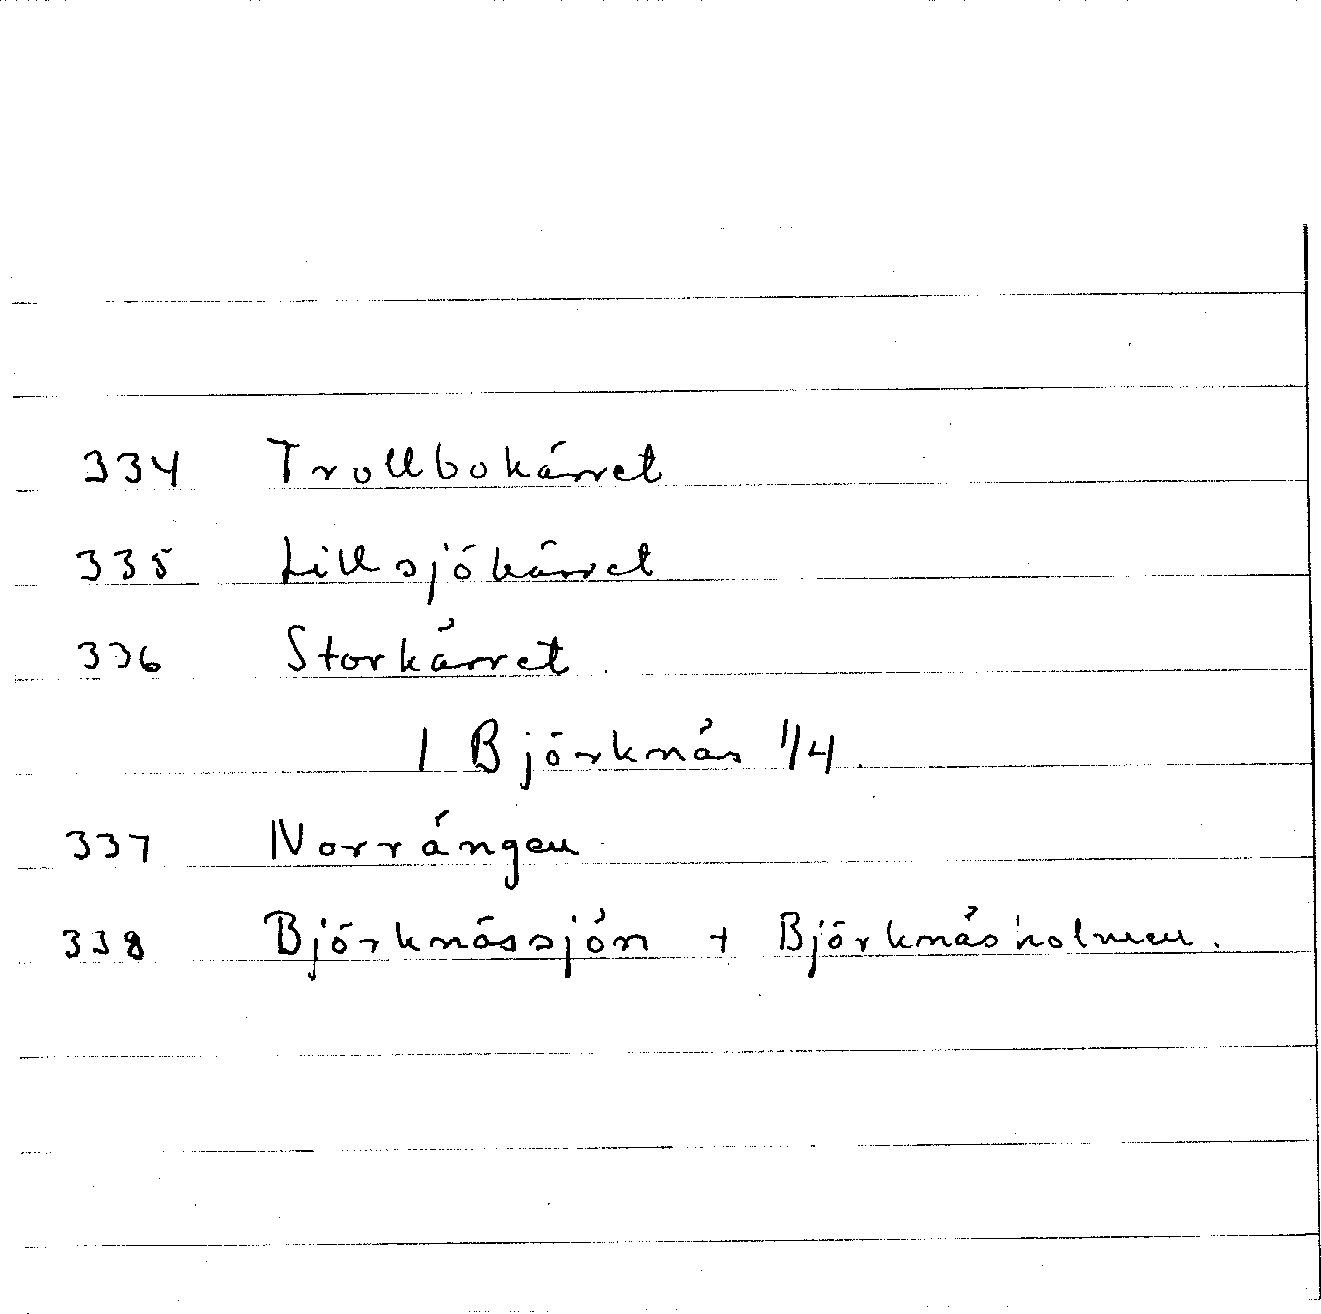 334 Trollbokärret
335 Lillsjökärret
336 Storkärret
1 Björknäs 1/4
337 Norrängen
338 Björknässjön + Björknäsholmen.